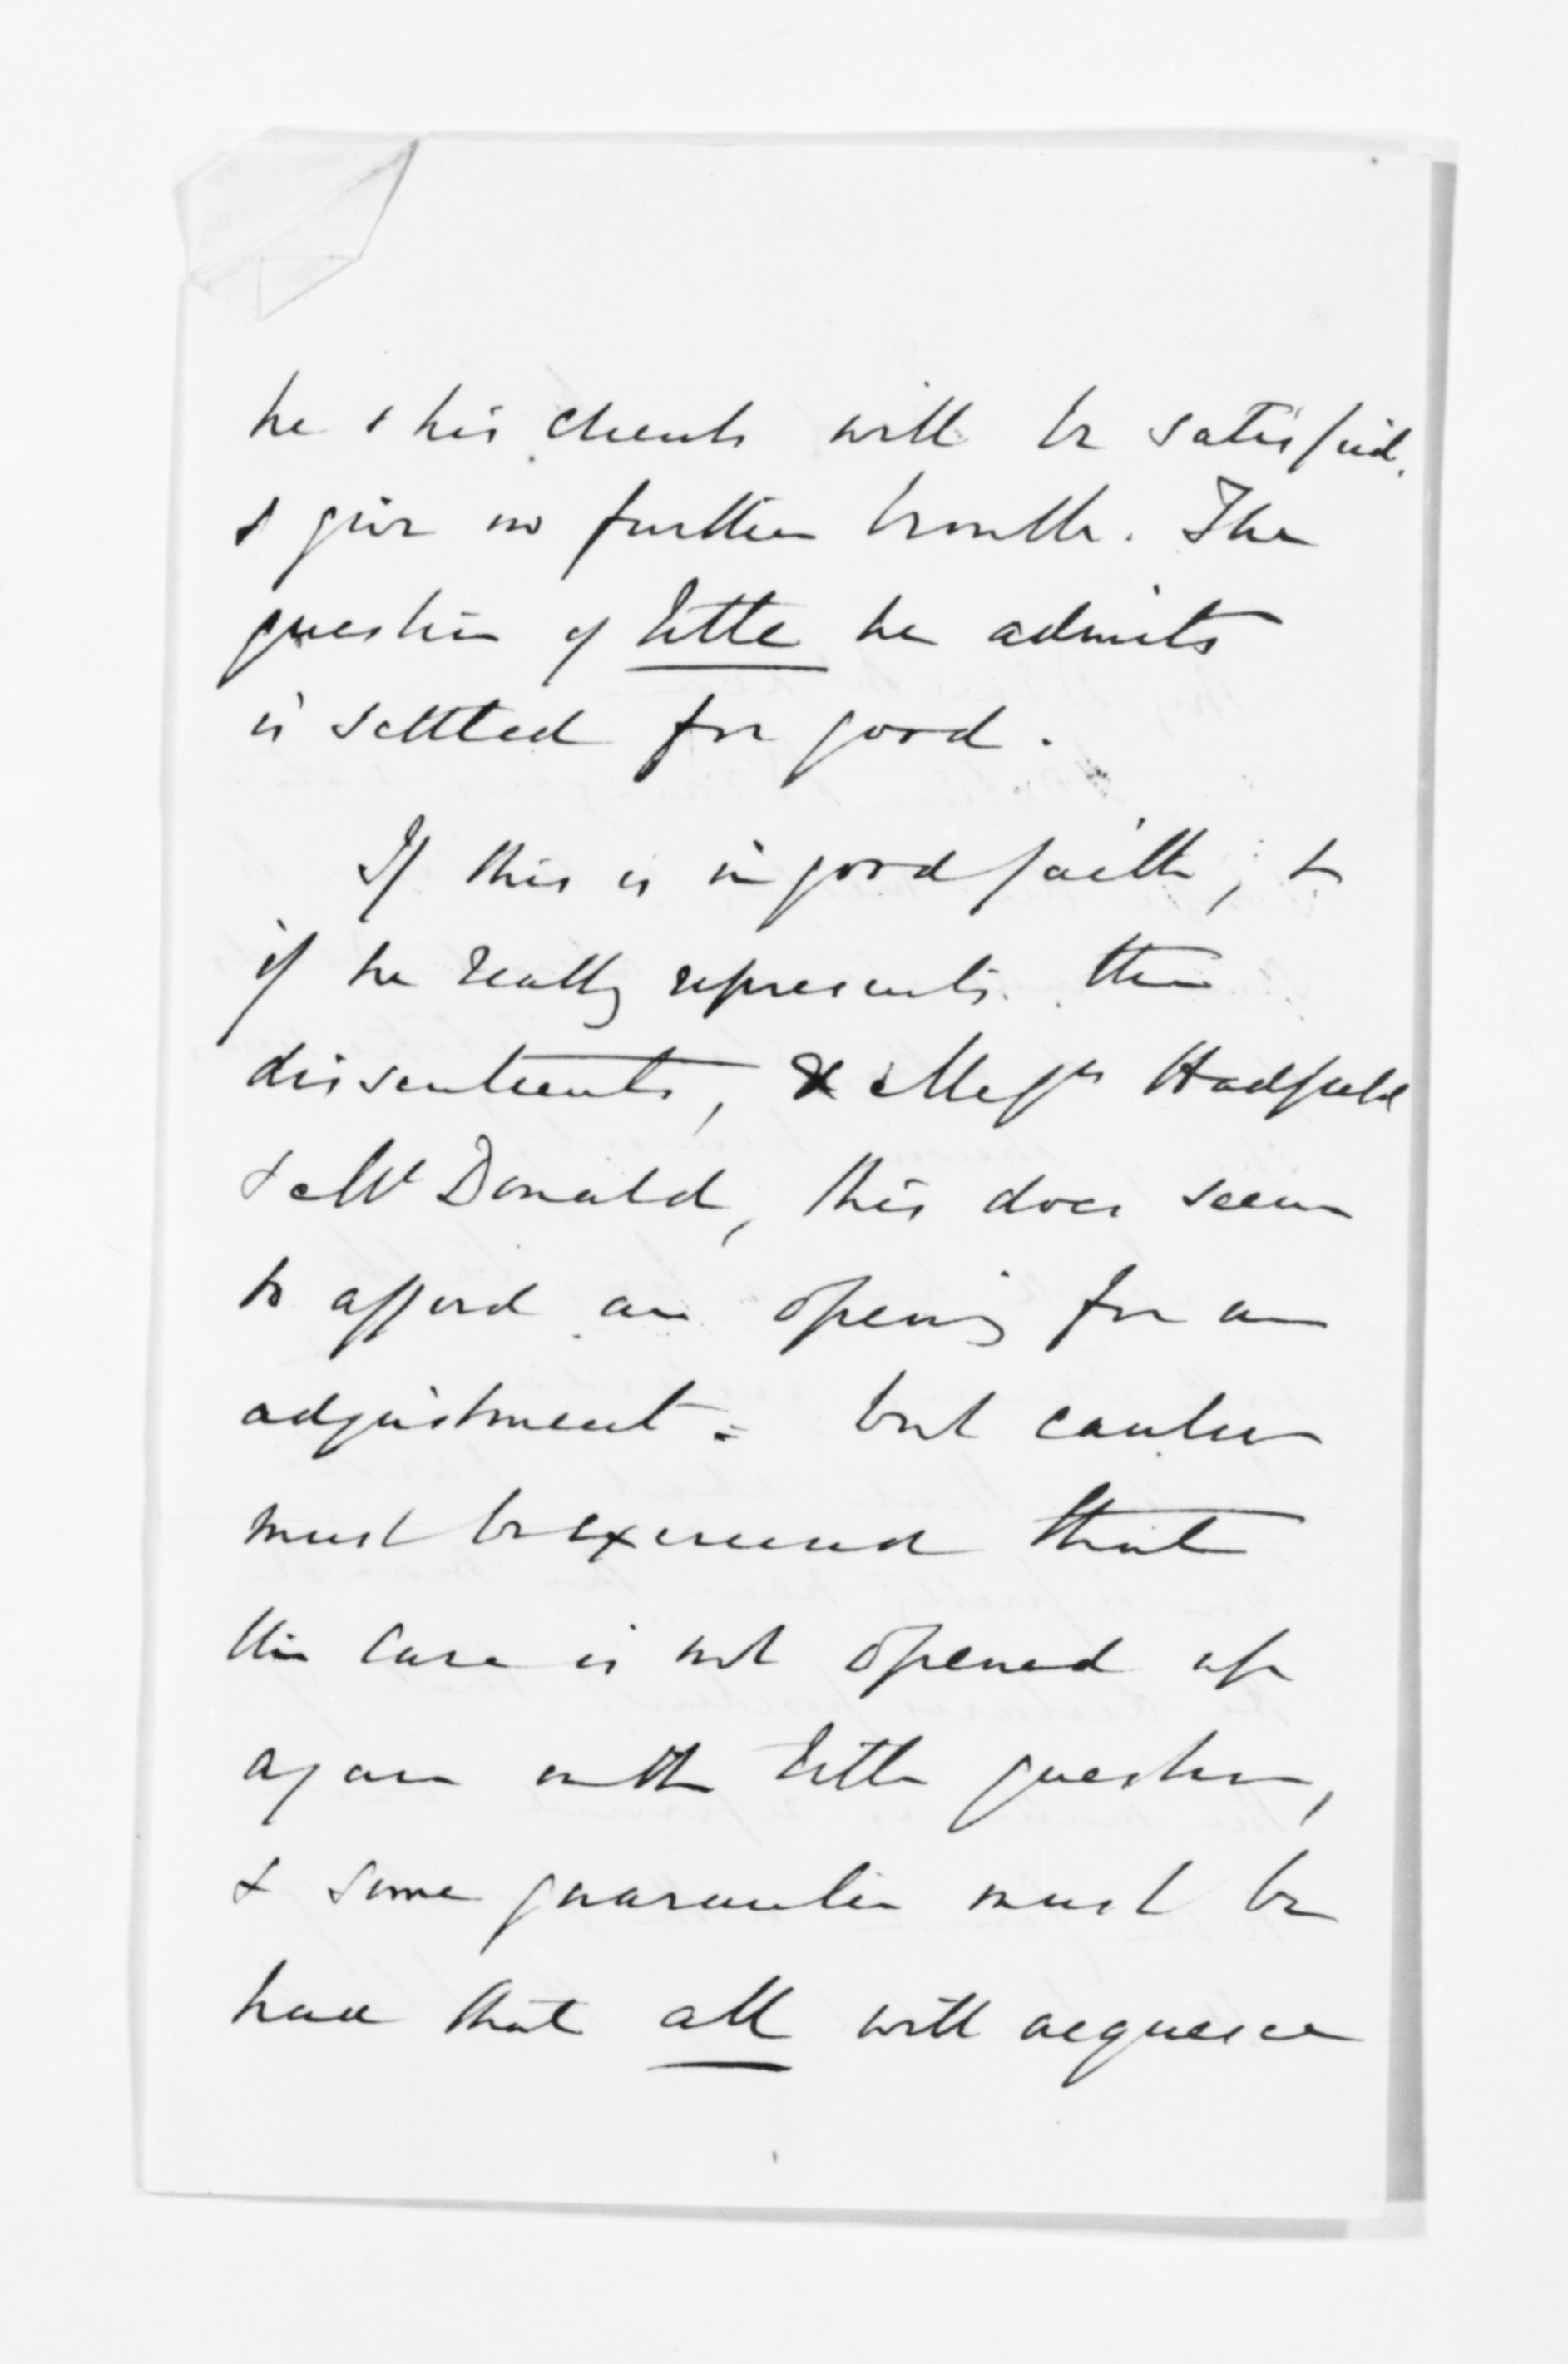 he & his clients will be satisfied.
& give no further trouble. The
question of title he admits
is settled for good.
If this is in good faith, &
if he really represents the
dissentients, & Messrs Hadfield
& McDonald, this does seem
to afford an opening for an
adjustment: but caution
must be exercised that
the case is not opened up
again with title question,
& some guarantee must be
have that all will acquiesce